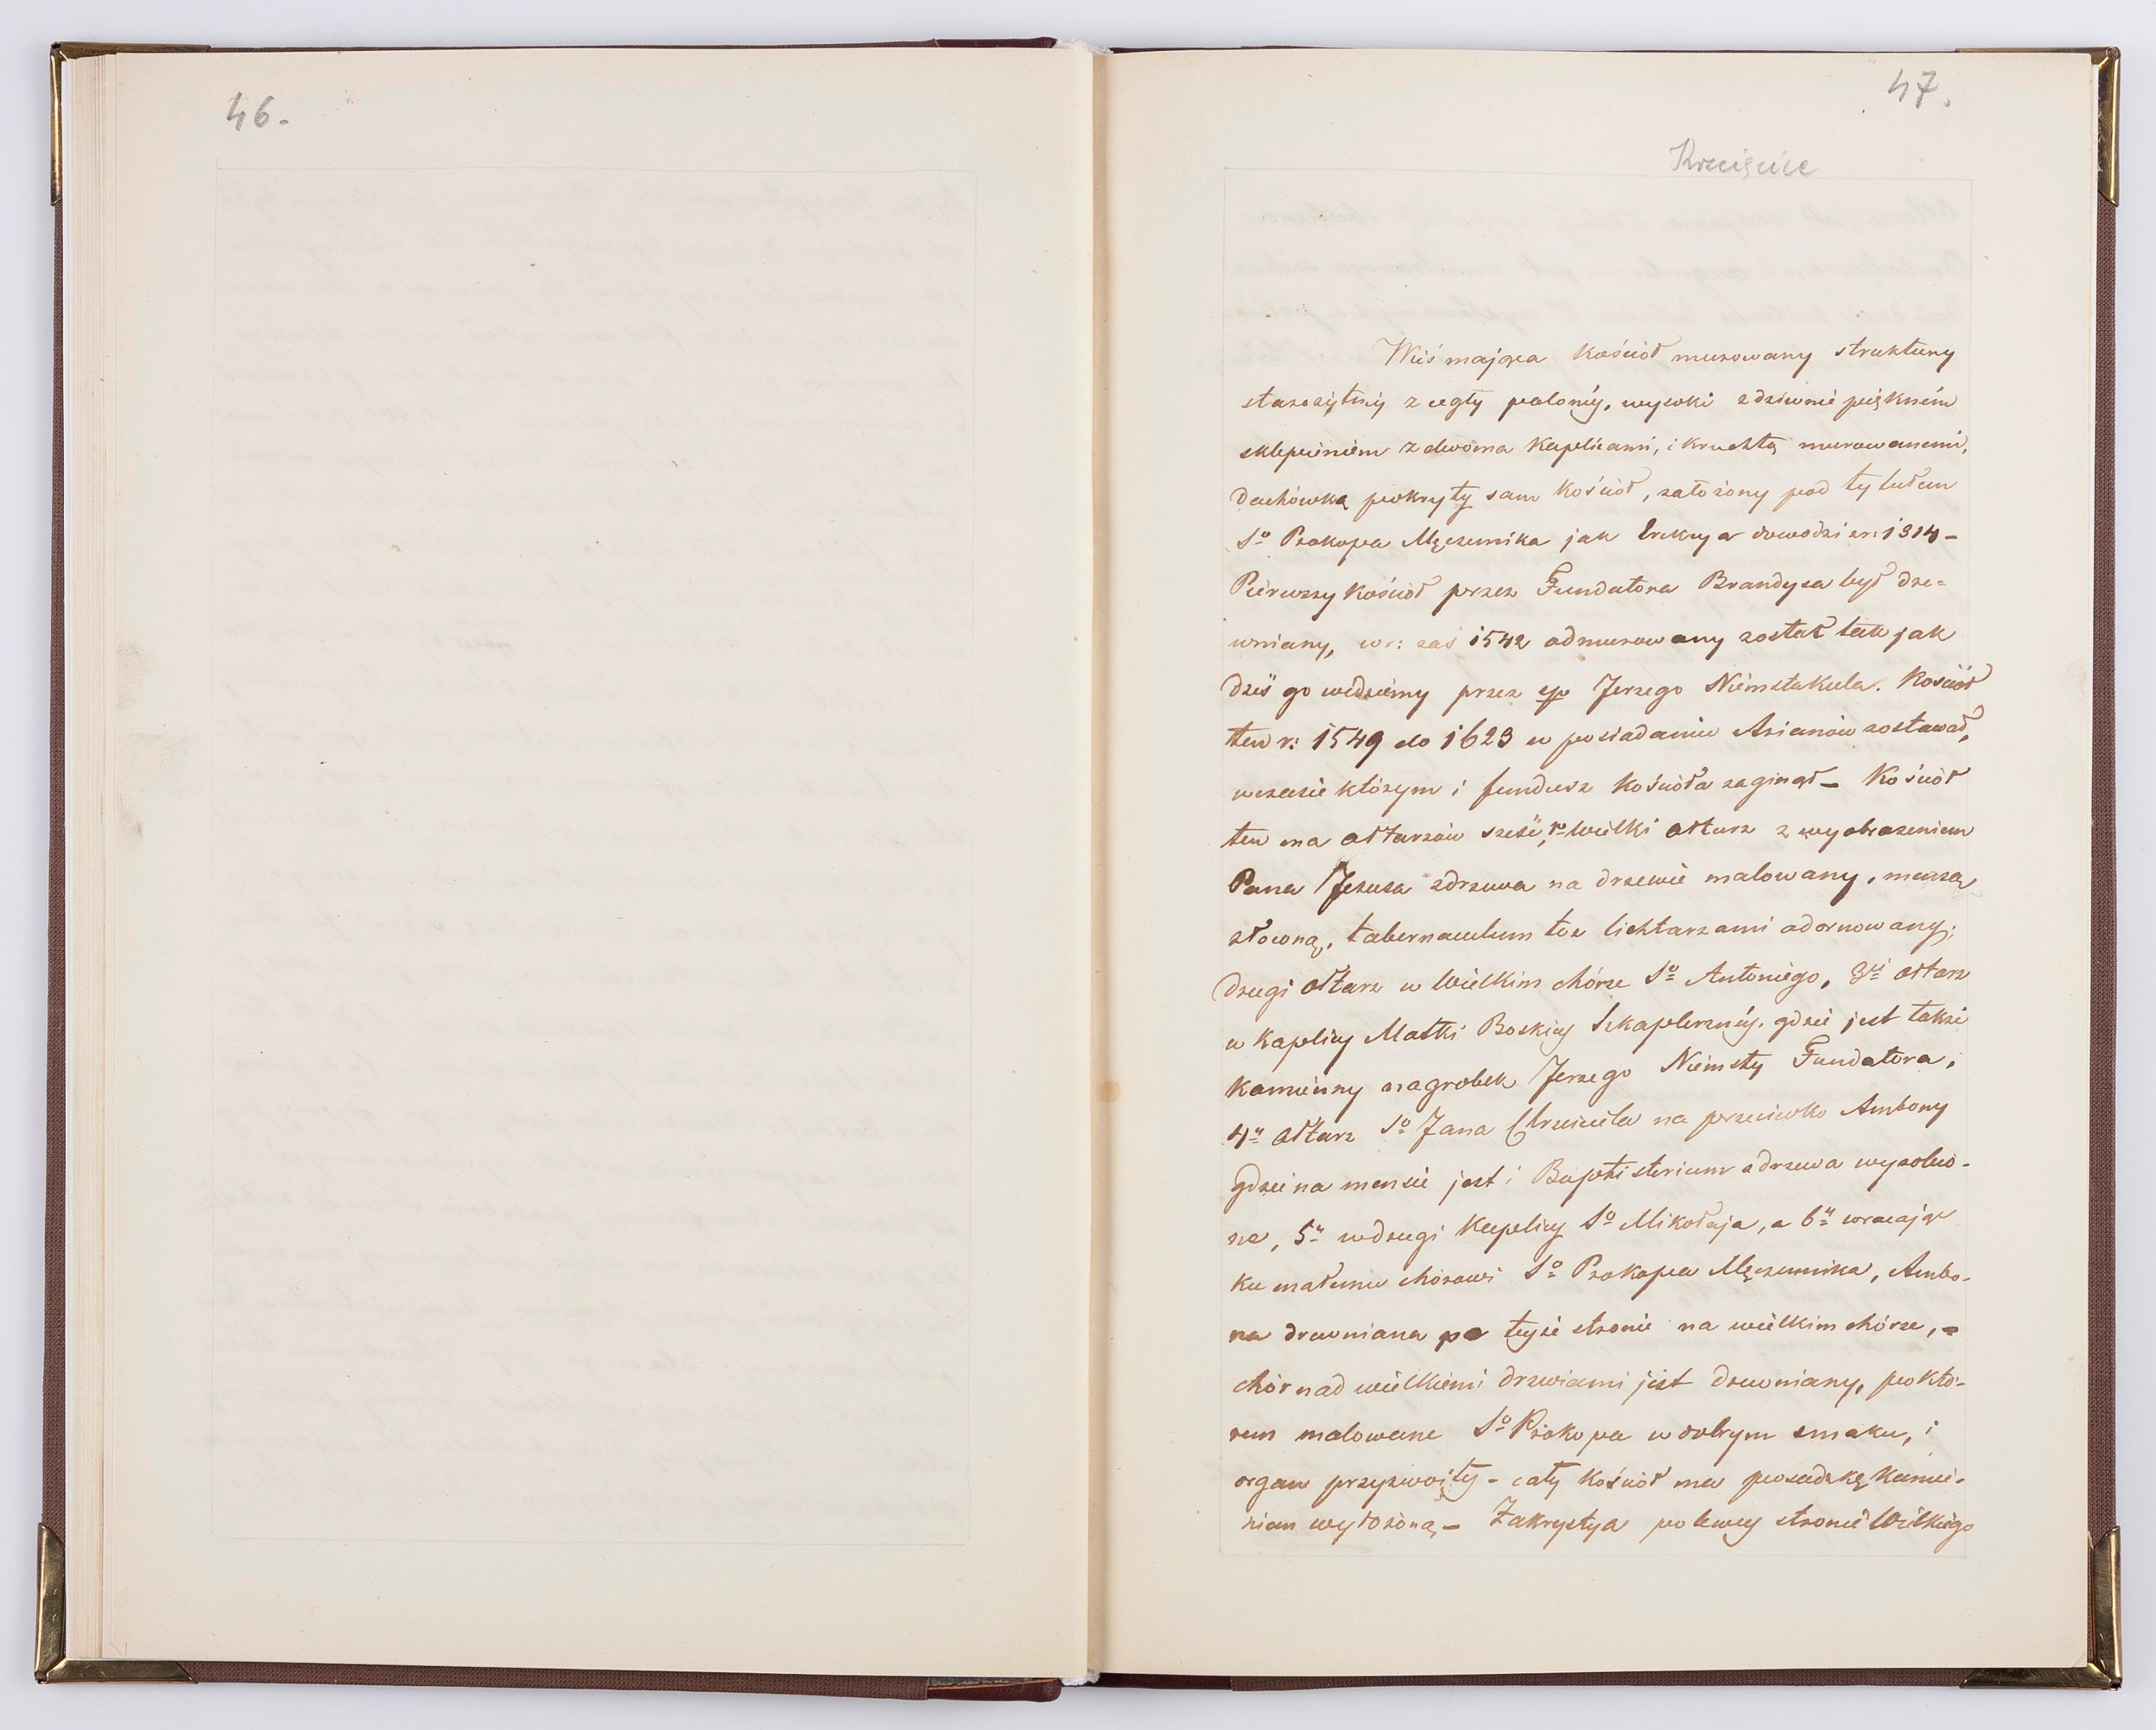 46.
47.
Krcięcice
Wieś mająca kościoł murowany struktury
starożytnéj z cegły palonéj, wysoki zdziwnie piękném
sklepieniem z dwoma kaplicami, i kruchtą murowanemi,
dachówką pokryty sam kościoł, założony pod tytułem
So Prokopa Męczennika jak Erekcya dowodzi w r: 1314 -
Pierwszy kościoł przez Fundatora Brandysa był dre=
wniany, w r: zaś 1542 odmurowany został tak jak
dziś go widziemy przez śp Jerzego Niemstakula. Kościoł
ten r: 1549 do 1623 w posiadaniu Arianów zostawał,
wczasie którym i fundusz kościoła zaginął - Kościoł
ten ma ołtarzów sześć, 1o Wielki ołtarz z wyobrażeniem
Pana Jezusa zdrzewa na drzewie malowany, menzą
złoconą, tabernaculum toż lichtarzami adornowany;
drugi ołtarz w Wielkim chórze So Antoniego, 3ci ołtarz
w Kaplicy Matki Boskiéj Szkaplerznéj. gdzie jest także
kamienny nagrobek Jerzego Niemsty Fundatora,
4y ołtarz So Jana Chrzciciela na przeciwko Ambony
gdzie na mensie jest i Baptisterium zdrzewa wyrobio-
ne, 5y wdrugi Kaplicy So Mikołaja, a 6y wracając
ku małemu chórowi So Prokopa Męczennika, Ambo-
na drewniana po tejże stronie na wielkim chórze, -
chór nad wielkiemi drzwiami jest drewniany, po któ-
rem malowane So Prokopa w dobrym smaku, i
organ przyzwoity - cały Kościoł ma posadzkę kamie-
niem wyłożoną - Zakrystya po lewéj stronie Wielkiego